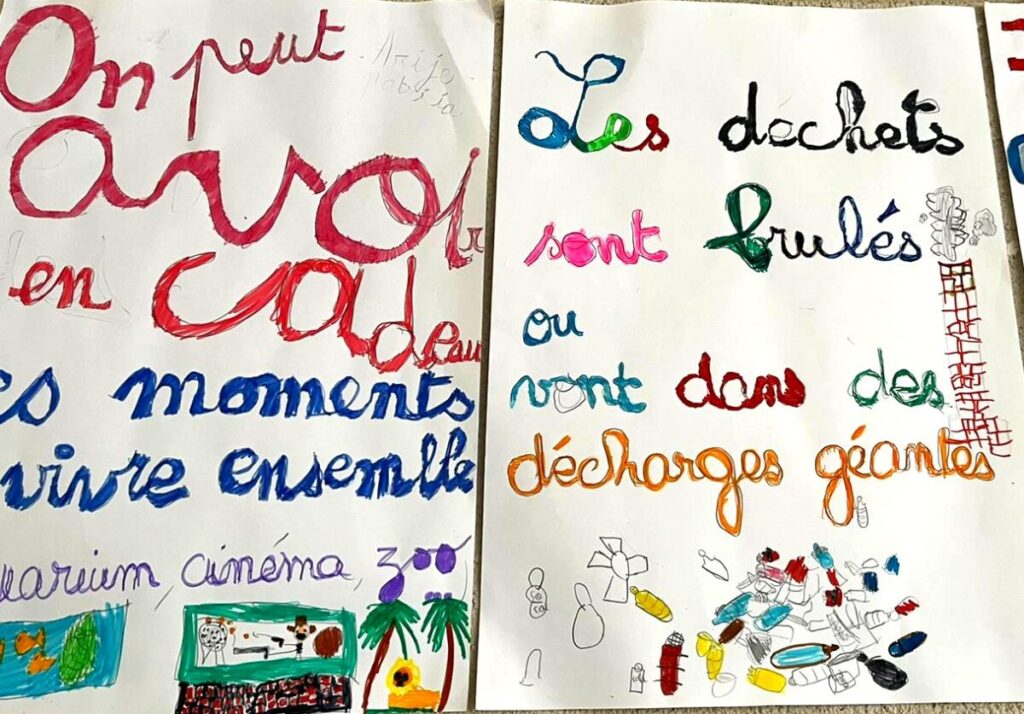 On peut
avoir
en cadeau
es moments
vivre ensemble
uarium, cinéma, zoo
Les déchets
sont brulés
ou
vont dans des
décharges géantes